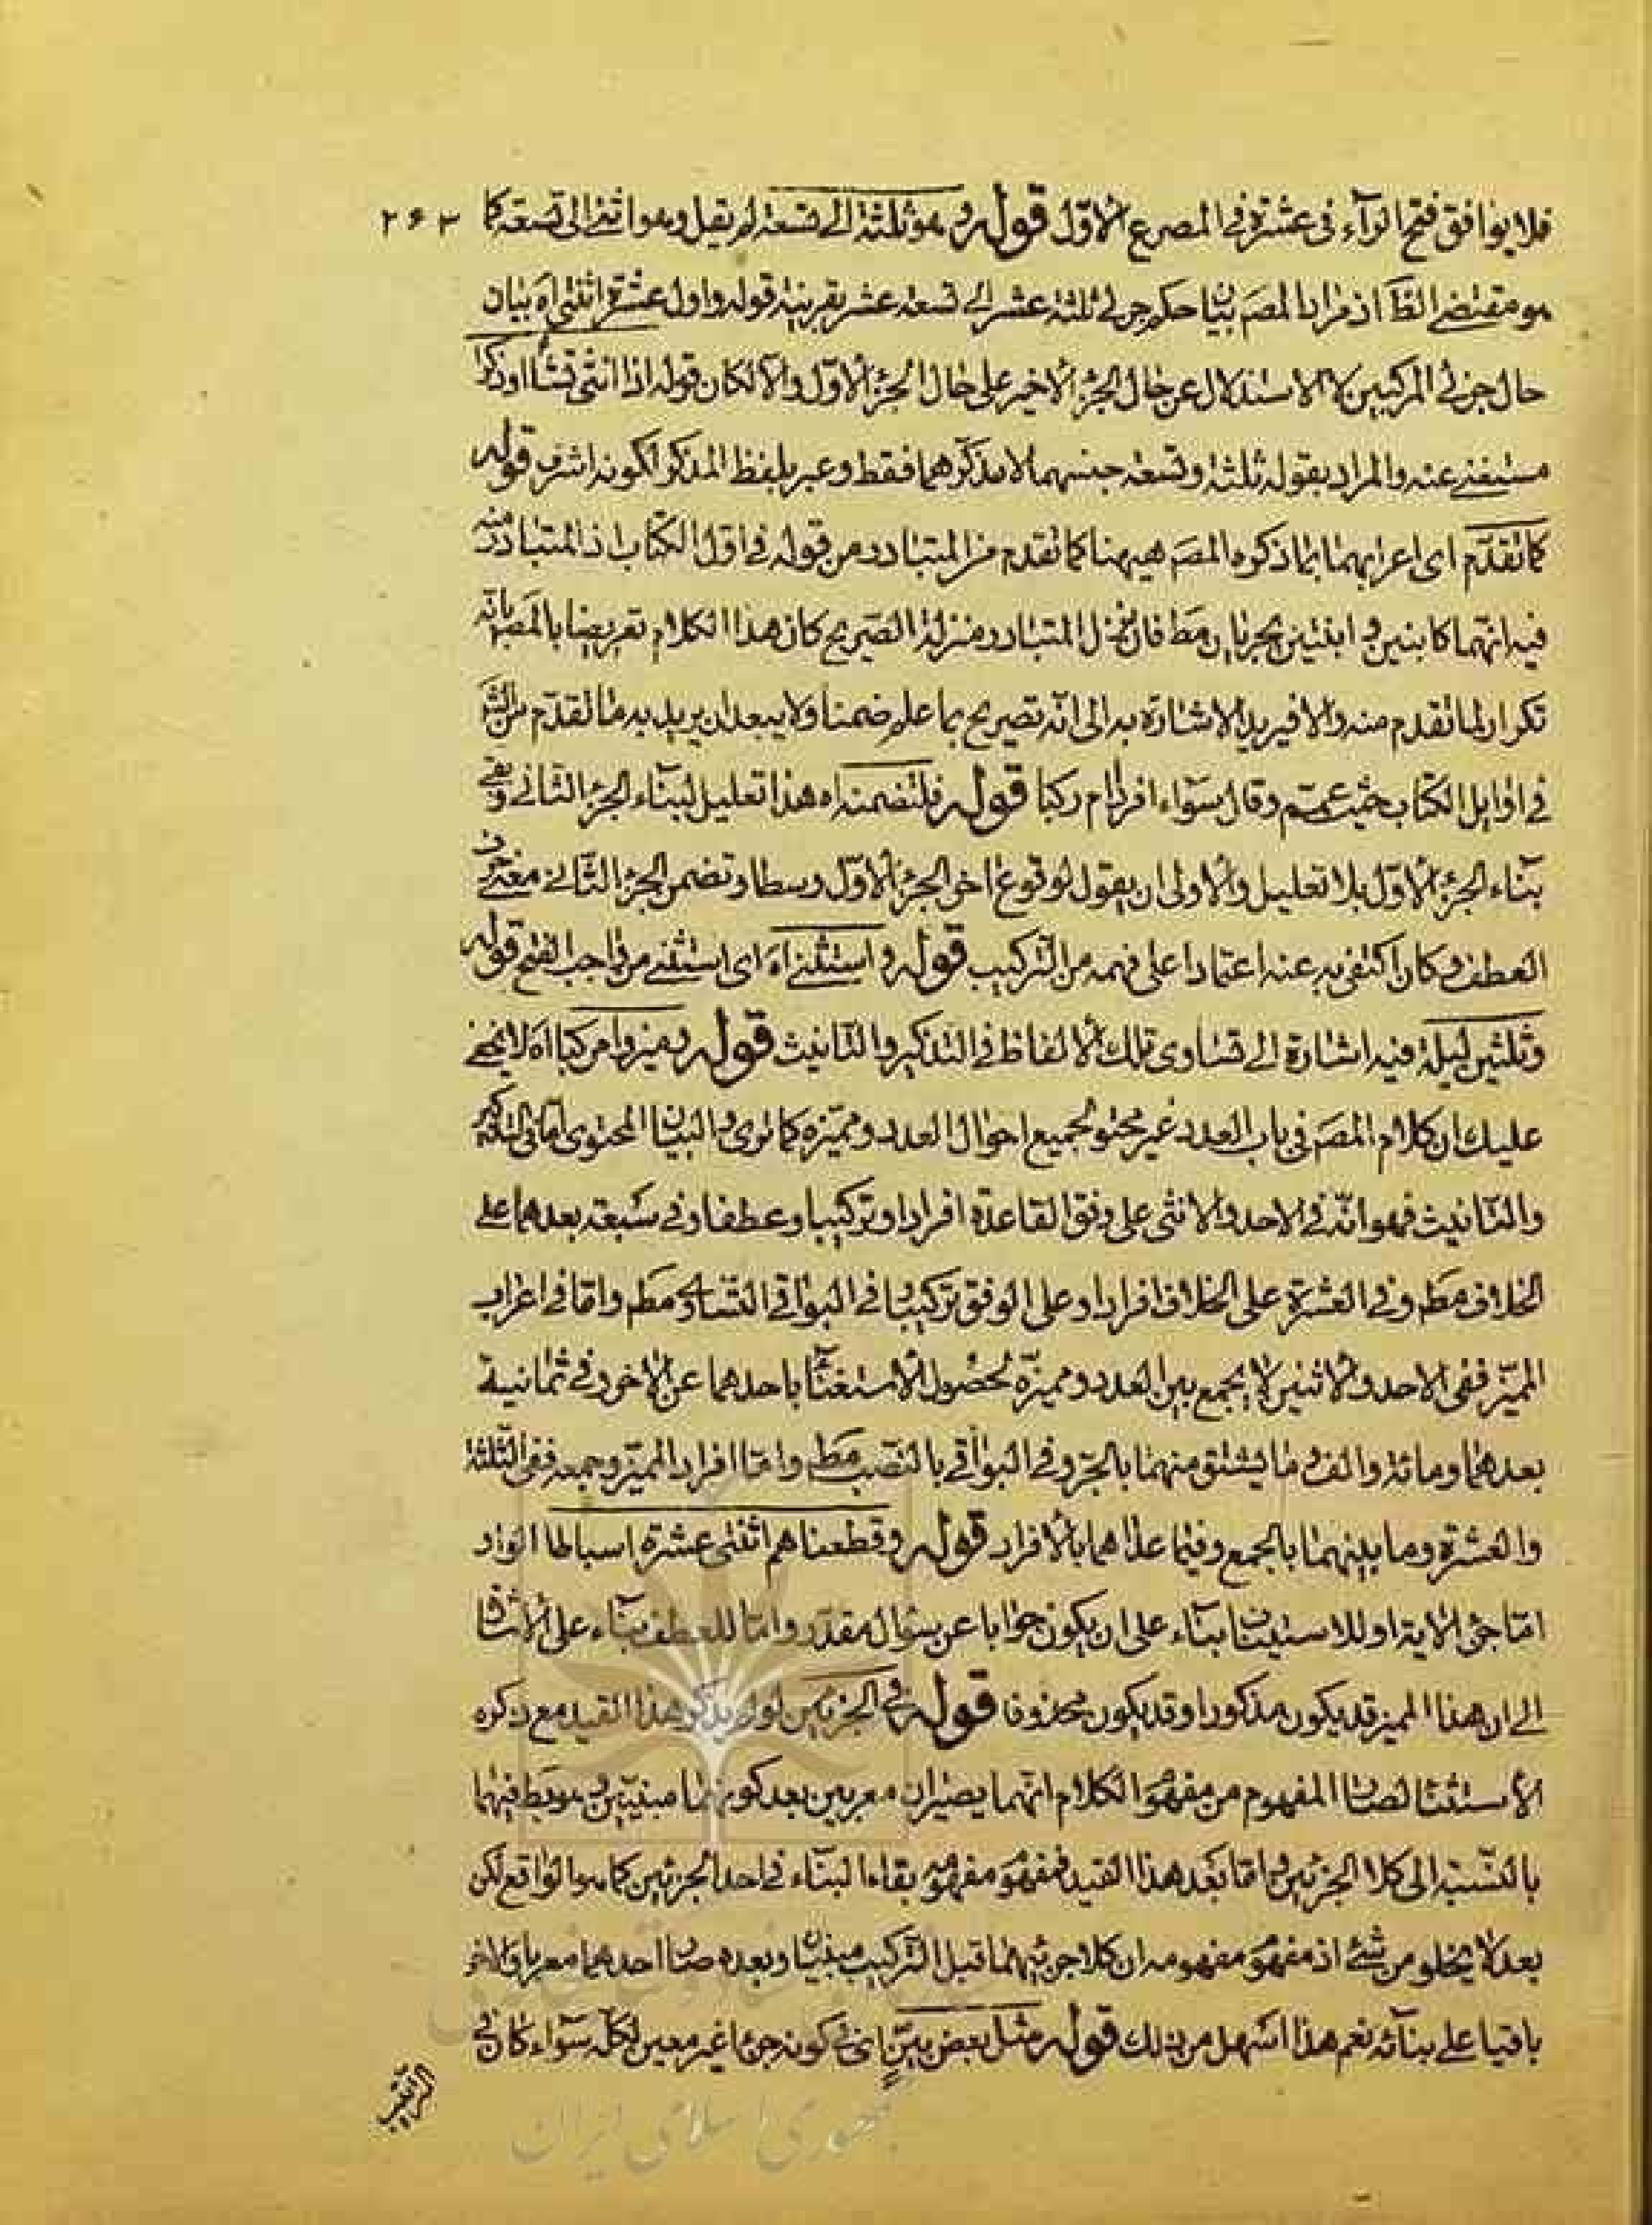 فلا يوافق فتح الرآء فى عشرة فى المصرع الاوّل قوله وهو ثلثة الى تسعة لم يقل وهو اثنى الى تسعة كما ٢٦٣
هو مقتضى الظ اذ مراد المصَ بيان حكم جزئى ثلثة عشر الى تسعة عشر بقرينة قوله واول عشرة اثنتى اه بيان
حال جزئى المركبين لا الاستدلال عن حال الجزء الاخير على حال الجزء الاوّل والّا لكان قوله اذا انثى تشا او ذكرا
مستغنى عنه والمراد بقوله ثلثة وتسعة جنسهما لا مذكّرهما فقط وعبر بلفظ المذكر لكونه اشرف قوله
كما تقدّم اى اعرابهما بما ذكره المصَ هيهنا كما تقدم من المتبادر من قوله فى اوّل الكتاب اذ المتبادر منه
فيه انهما كابنين وابنتين يجريان مط فان نزل المتبادر منزلة الصّريح كان هذا الكلام تعريضا بالمصَ بانه
تكرار لما تقدم منه والا فيريد الاشارة به الى انّه تصريح بما علم ضمنا ولا يبعد ان يريد به ما تقدّم من الشَ
فى اوايل الكتاب حيث عمّم وقال سوآء افردا ام ركبا قوله فلتضمنه اه هذا تعليل لبنآء الجزء الثانى وبقى
بنآء الجزء الاوّل بلا تعليل والاولى ان يقول لوقوع آخر الجزء الاوّل وسطا وتضمن الجزء الثّانى معنى حرف
العطف وكان اكتفى به عنه اعتمادا على فهمه من التركيب قوله واستثنى اه اى استثنى من واجب الفتح قوله
وثلثين ليلة فيه اشارة الى تساوى تلك الالفاظ فى التذكير والتانيث قوله وميزوا مركبا اه لا يخفى
عليك ان كلام المصَ فى باب العدد غير محتو لجميع احوال العدد ومميّزه كما ترى والبيان المحتوى امّا فى التذكير
والتّانيث فهو انّه فى الاحد والاثنى على وفق القاعدة افرادا وتركيبا وعطفا وفى سبعة بعدهما على
الخلاف مط وفى العشرة على الخلاف افرادا وعلى الوفق تركيبا وفى البواقى التساوى مط وامّا فى اعراب
المميّز ففى الاحد والاثنين لا يجمع بين العدد ومميزه لحصول الاستغنآء باحدهما عن الآخر وفى ثمانية
بعدهما ومائة والف وما يشتق منهما بالجرّ وفى البواقى بالنّصب مط وامّا افراد المميّز وجمعه ففى الثّلثة
والعشرة وما بينهما بالجمع وفيما عداهما بالافراد قوله وقطعناهم اثنتى عشرة اسباطا الواو
امّا جزء الآية او للاستيناف بنآء على ان يكون جوابا عن سؤال مقدّر وامّا للعطف بنآء على الاشارة
الى ان هذا المميز قد يكون مذكورا وقد يكون محذوفا قوله فى الجزئين لو لم يذكر هذا القيد مع ذكره
الاستثناء لصار المفهوم من مفهوم الكلام انّهما يصيران معربين بعد كونهما مبنيّين وهو بط فيهما
بالنّسبة الى كلا الجزئين وامّا بعد هذا القيد فمفهوم مفهومه بقاء البنآء فى احد الجزئين كما هو الواقع لكن
بعد لا يخلو من شئ اذ مفهوم مفهومه ان كلا جزئيهما قبل التركيب مبنيّان وبعده صار احدهما معربا والآخر
باقيا على بنآئه نعم هذا اسهل من ذلك قوله مثل بعض بيّن اى فى كونه جزءا غير معين لكلّه سوآء كان فى
جمهوری اسلامی ایران